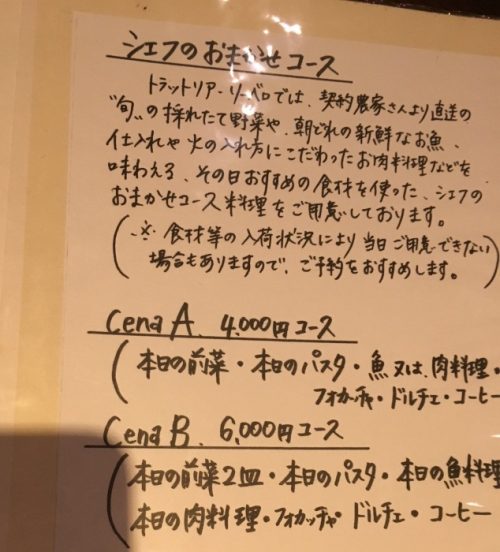 シェフのおまかせコース
トラットリア・リーベロでは、契約農家さんより直送の
"旬"の採れたて野菜や、朝どれの新鮮なお魚、
仕入れや火の入れ方にこだわったお肉料理などを
味わえる、その日おすすめの食材を使った、シェフの
おまかせコース料理をご用意しております。
(※ 食材等の入荷状況により当日ご用意できない
場合もありますので、ご予約をおすすめします。)
Cena A. 4,000円コース
(本日の前菜・本日のパスタ・魚又は、肉料理・
フォカッチャ・ドルチェ・コーヒー
Cena B. 6,000円コース
(本日の前菜2皿・本日のパスタ・本日の魚料理
本日の肉料理・フォカッチャ・ドルチェ・コーヒー